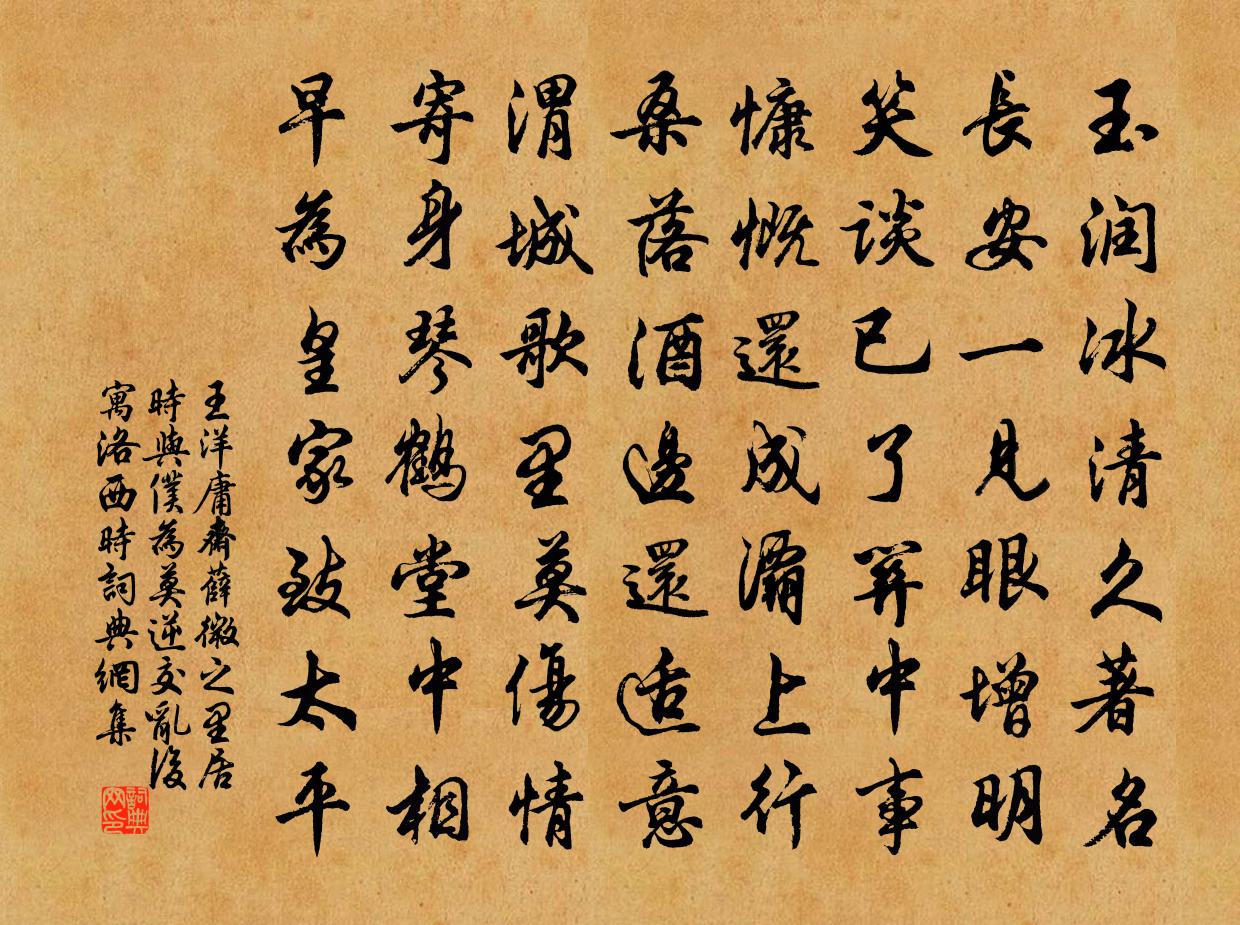 玉润冰清久著名
長安一見眼增明
笑談已了中事
慷慨還成灞上行
桑落酒邊還适意
渭城歌里莫傷情
寄身琴鶴堂中相
早為皇家致太平
王洋庸齋薛微之里居
時與僕為莫逆交亂後
寓洛西時詞典網集
詞典网印